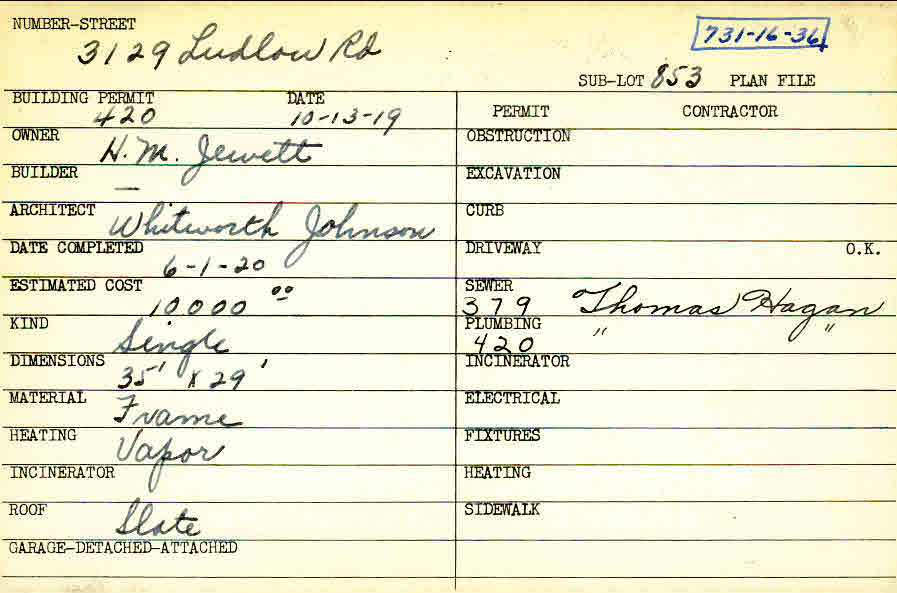 NUMBER-STREET
3129 Ludlow Rd
731-16-36
SUB-LOT 853 PLAN FILE
BUILDING PERMIT DATE
420 10-13-19
PERMIT CONTRACTOR
OWNER
H. M. Jewett
OBSTRUCTION
BUILDER
—
EXCAVATION
ARCHITECT
Whitworth Johnson
CURB
DATE COMPLETED
6-1-20
DRIVEWAY O.K.
ESTIMATED COST
10000 00
SEWER
379 Thomas Hagan
KIND
Single
PLUMBING
420 " "
DIMENSIONS
35' x 29'
INCINERATOR
MATERIAL
Frame
ELECTRICAL
HEATING
Vapor
FIXTURES
INCINERATOR
HEATING
ROOF
Slate
SIDEWALK
GARAGE-DETACHED-ATTACHED